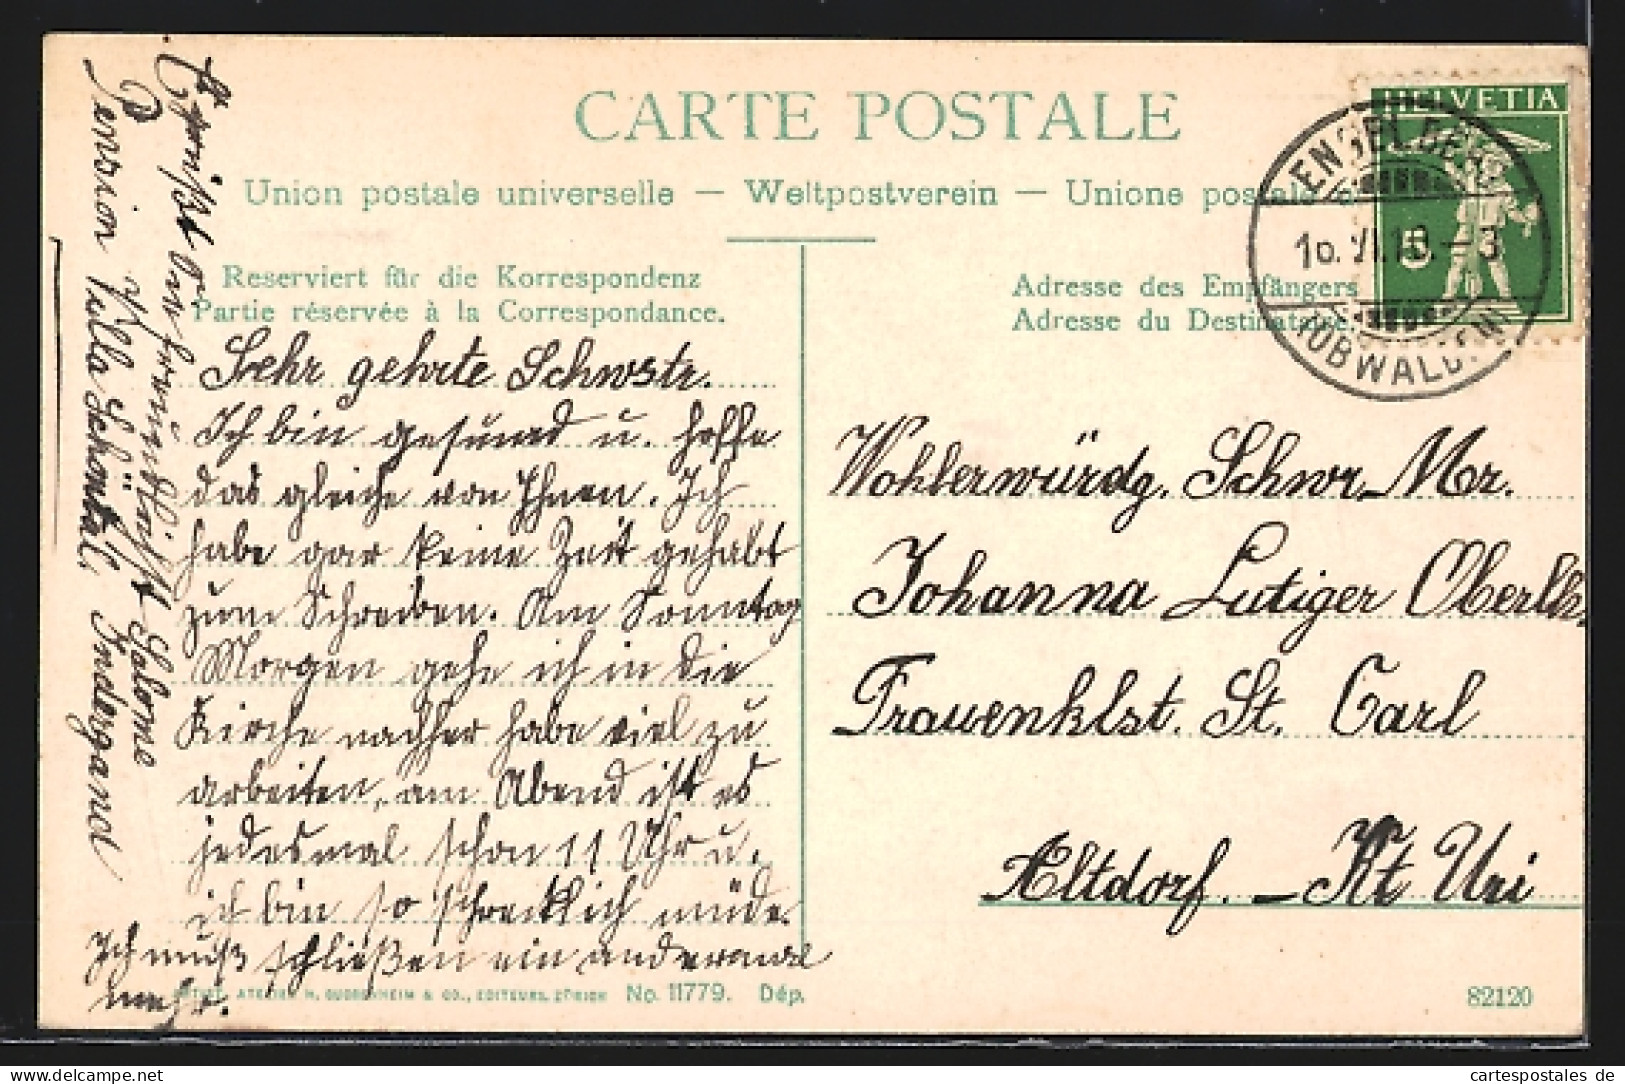 CARTE POSTALE
Union postale universelle — Weltpostverein — Unione postale
HELVETIA
5
ENGELBERG
10. VI. 13. – 3
(OBWALDEN)
Reserviert für die Korrespondenz
Partie réservée à la Correspondance.
Adresse des Empfängers
Adresse du Destinataire.
Sehr gehrte Schwstr.
Ich bin gesund u. hoffe
das gleiche von Ihnen. Ich
habe gar keine Zeit gehabt
zum Schreiben. Am Sonntag
Morgen gehe ich in die
Kirche nachher habe viel zu
arbeiten, am Abend ist es
jedesmal schon 11 Uhr u.
ich bin so schrecklich müde.
Ich muß schließen ein anderanal
mehr.
Es grüßt Sie
freundlichst Salome
Indergand
Pension Villa Schöntal
Wohlerwürdg. Schwr. Mr.
Johanna Lutiger Oberlhr.
Frauenklst. St. Carl
Altdorf. – Kt Uri
ATELIER H. GUGGENHEIM & CO., EDITEURS, ZÜRICH No. 11779. Dép.
82120
cartespostales de